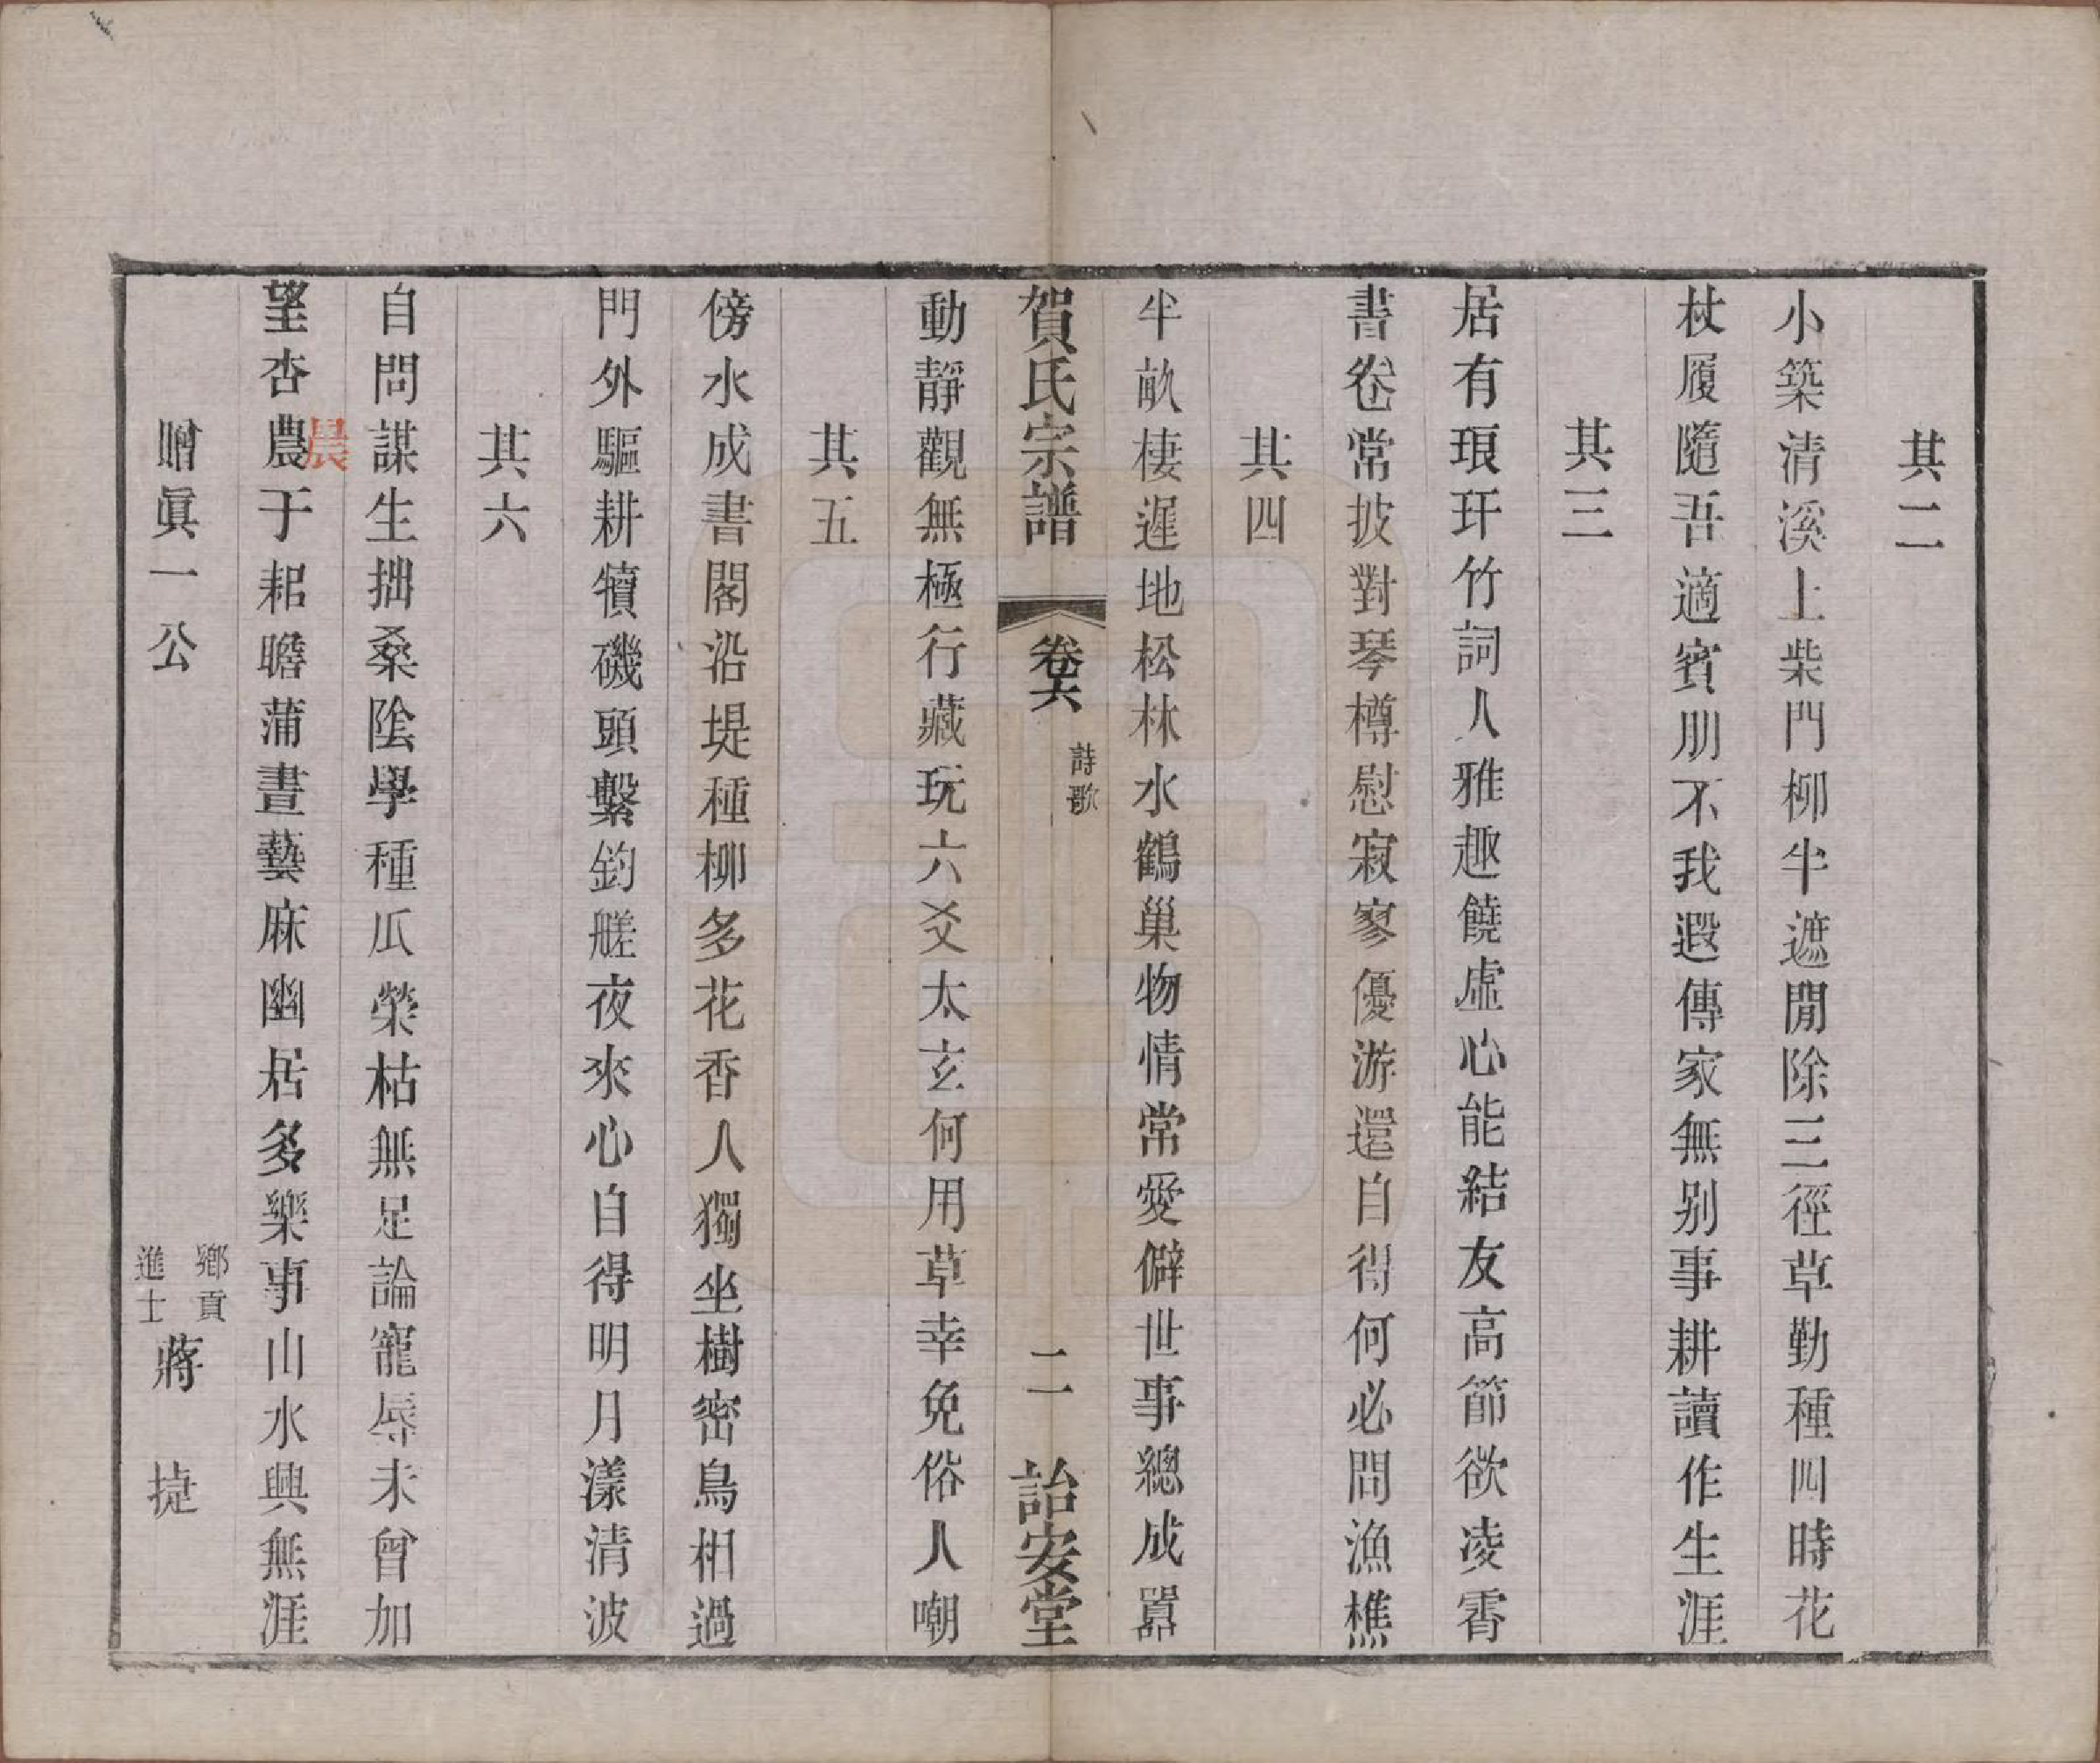 其二
小築清溪上柴門柳半遮閒除三徑草勤種四時花
杖履隨吾適賓朋不我遐傳家無别事耕讀作生涯
其三
居有琅玕竹詞人雅趣饒虛心能結友高節欲凌霄
書卷常披對琴樽慰寂寥優游還自得何必問漁樵
其四
半畝棲遲地松林水鶴巢物情常愛僻世事總成囂
賀氏宗譜
卷六
詩歌
二
詒安堂
動靜觀無極行藏玩六爻太玄何用草幸免俗人嘲
其五
傍水成書閣沿堤種柳多花香人獨坐樹密鳥相過
門外驅耕犢磯頭繫釣艖夜來心自得明月漾清波
其六
自問謀生拙桑陰學種瓜榮枯無足論寵辱未曾加
望杏農于耜瞻蒲晝藝麻幽居多樂事山水興無涯
晨
贈眞一公
鄉貢
進士
蔣捷